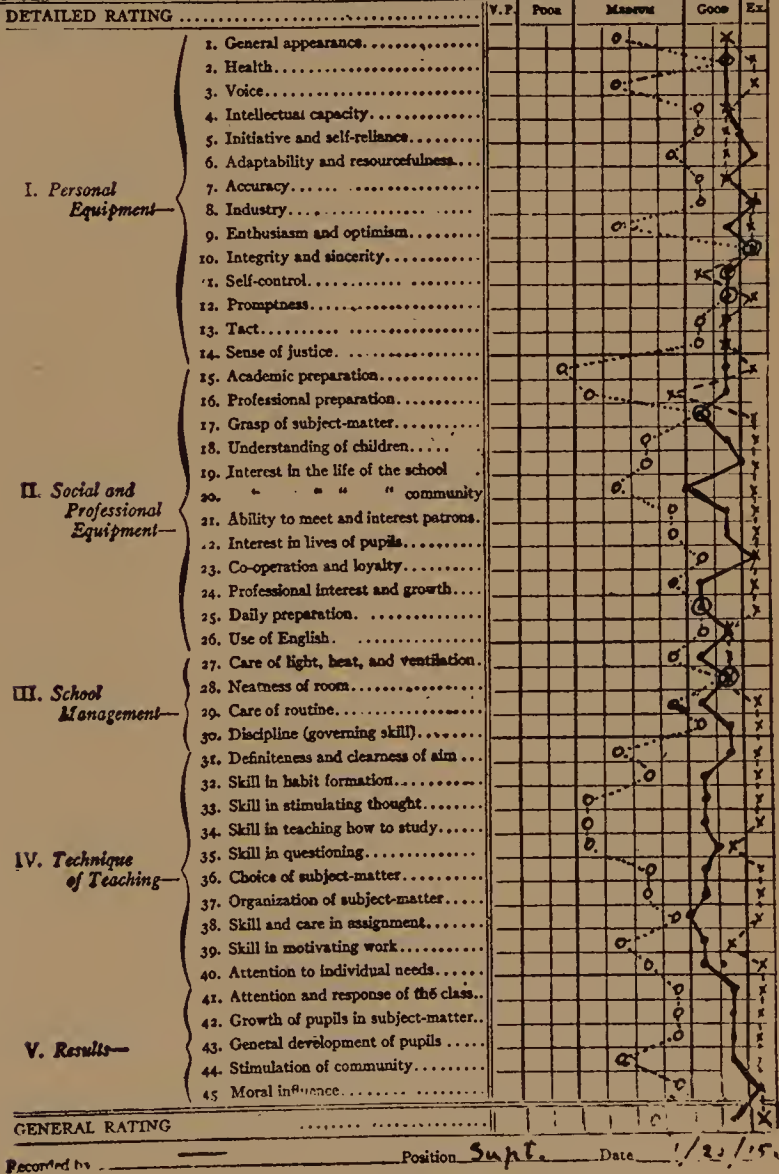 DETAILED RATING ........ V.P. POOR MEDIUM GOOD EX.
1. General appearance
2. Health
3. Voice
4. Intellectual capacity
5. Initiative and self-reliance
6. Adaptability and resourcefulness
I. Personal Equipment—
7. Accuracy
8. Industry
9. Enthusiasm and optimism
10. Integrity and sincerity
1. Self-control
12. Promptness
13. Tact
14. Sense of justice.
15. Academic preparation
16. Professional preparation
17. Grasp of subject-matter
18. Understanding of children
19. Interest in the life of the school
II. Social and Professional Equipment—
20. " " " " community
21. Ability to meet and interest patrons.
.2. Interest in lives of pupils
23. Co-operation and loyalty
24. Professional interest and growth
25. Daily preparation.
26. Use of English.
27. Care of light, heat, and ventilation.
III. School Management—
28. Neatness of room
29. Care of routine
30. Discipline (governing skill)
31. Definiteness and clearness of aim
32. Skill in habit formation
33. Skill in stimulating thought
34. Skill in teaching how to study
IV. Technique of Teaching—
35. Skill in questioning
36. Choice of subject-matter
37. Organization of subject-matter
38. Skill and care in assignment
39. Skill in motivating work
40. Attention to individual needs
41. Attention and response of the class
42. Growth of pupils in subject-matter
V. Results—
43. General development of pupils
44. Stimulation of community
45 Moral influence
GENERAL RATING
Recorded by Position Supt. Date